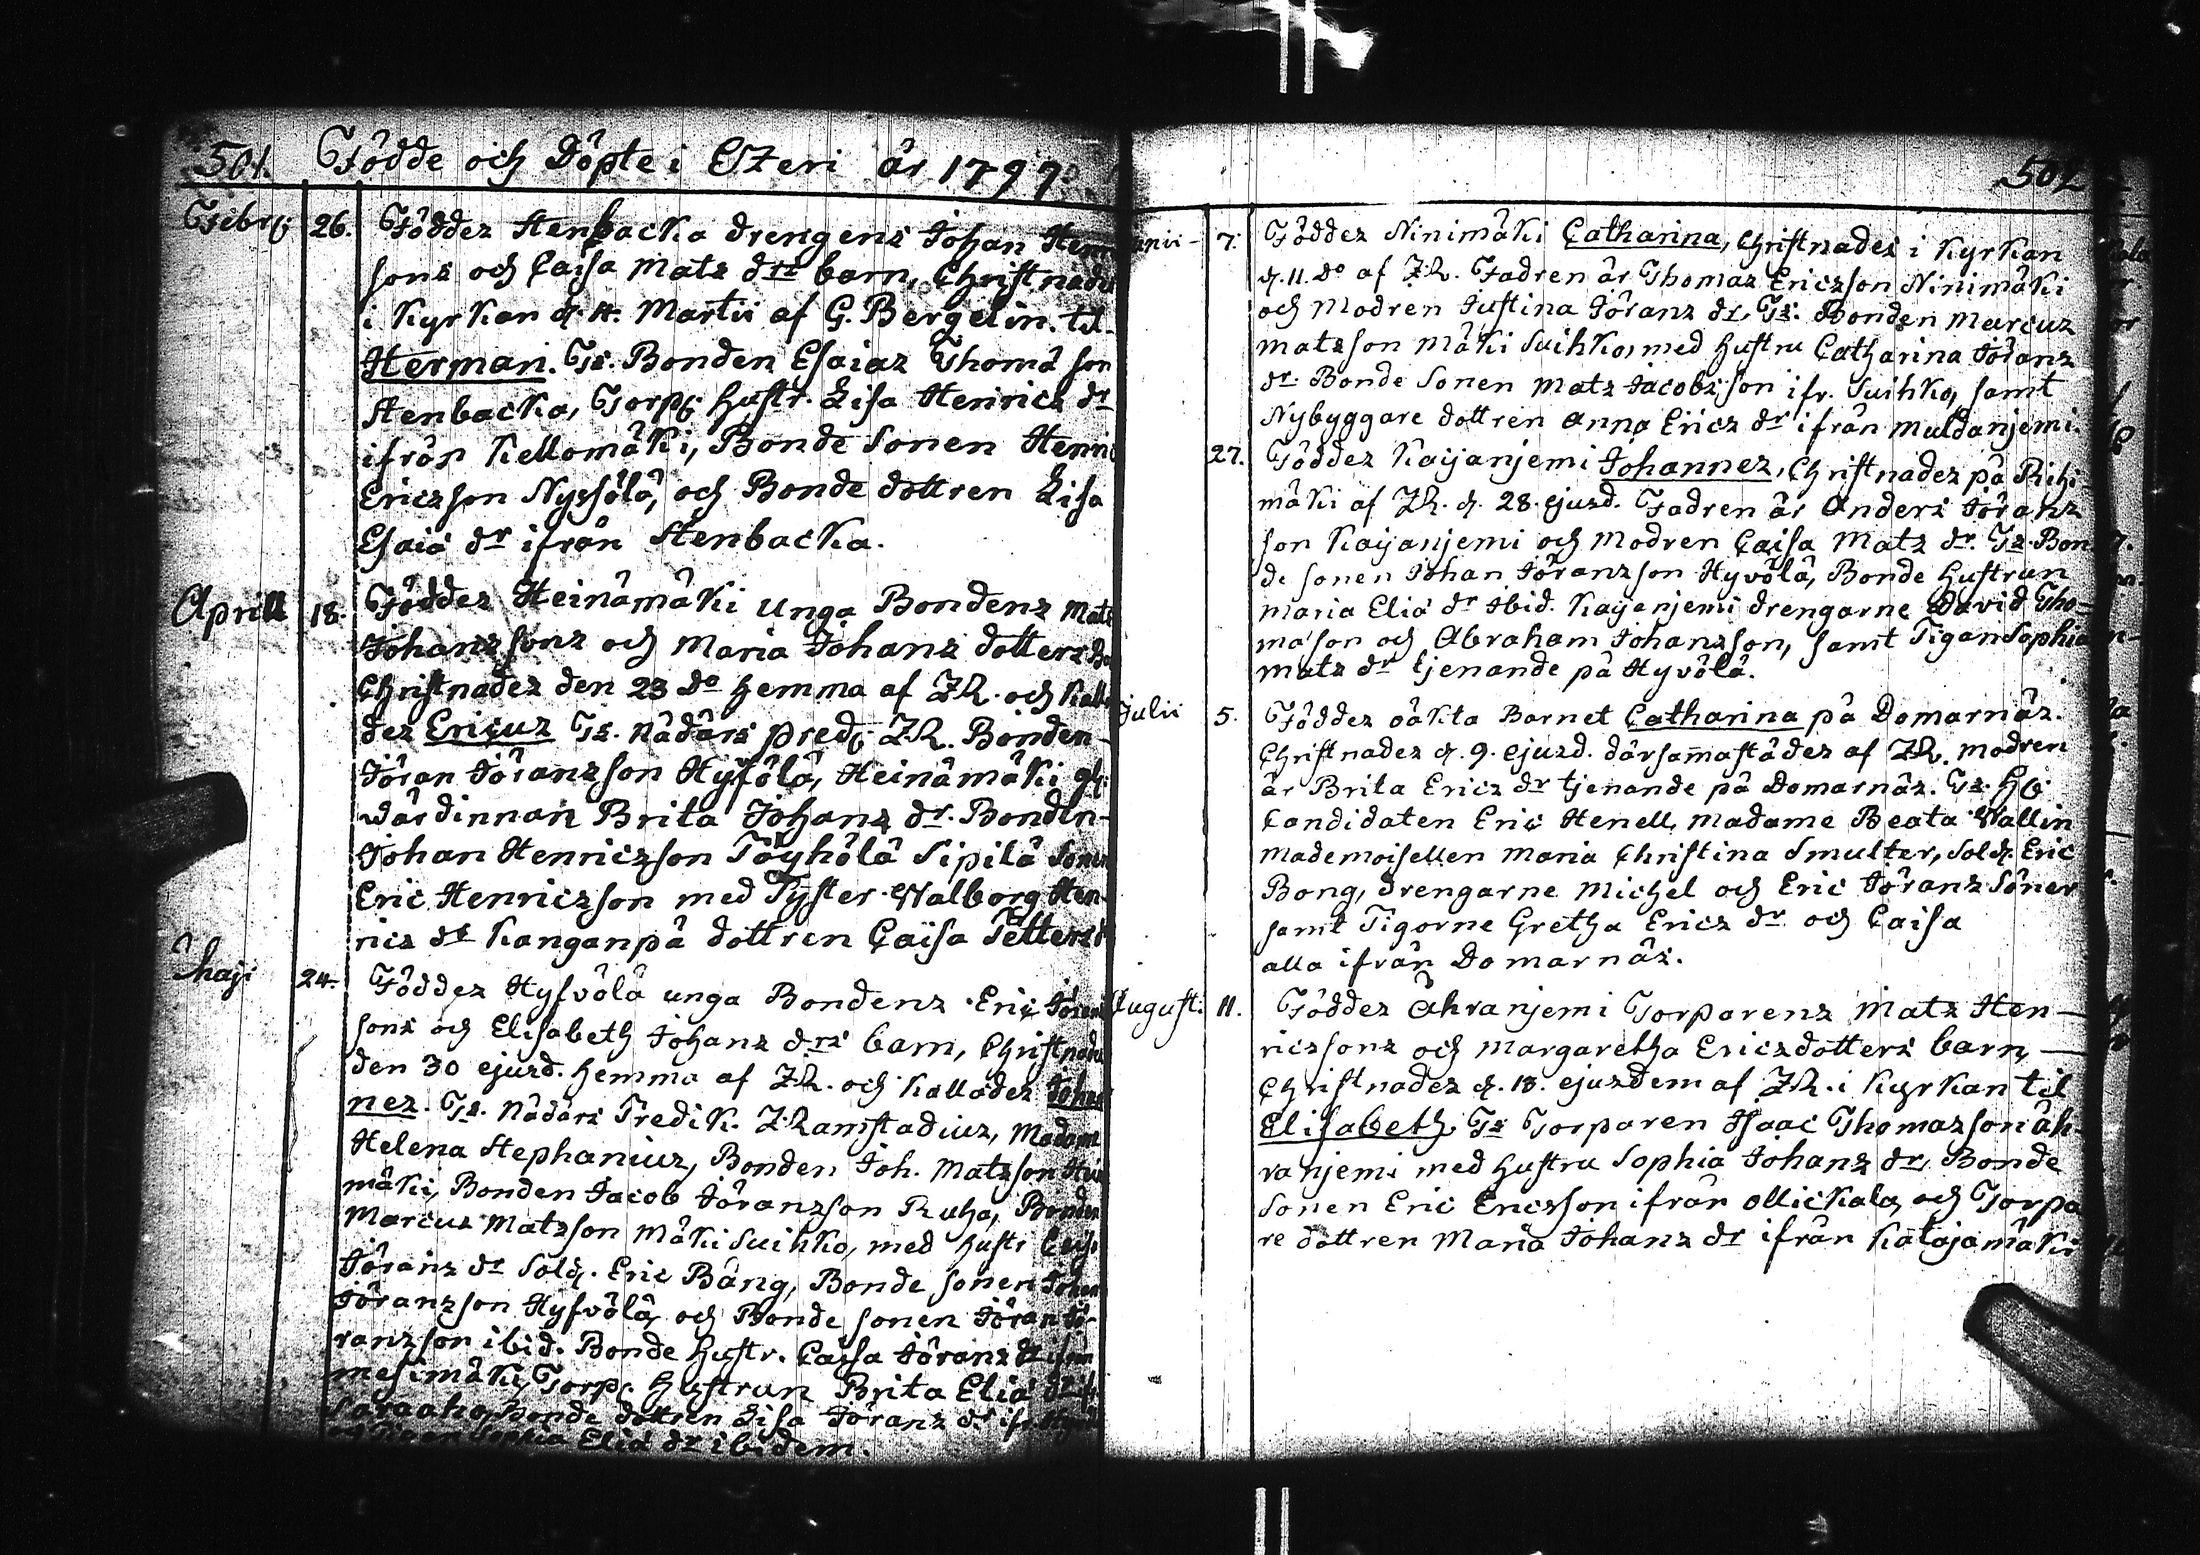 501. Födde och Döpte i Etzeri år 1797.
Febr: 26. Föddes Stenbacka drengens Johan
sons och Caisa Mats drs barn, Christnades
i Kyrkan d. 4. Martii af G. Bergelin. til
Herman. Ts. Bonden Esaias Thomä son
Stenbacka, Torp: hustr. Lisa Henrics dr
ifrån Kellomäki, Bonde Sonen
Ericsson Nyssölä, och Bonde dottren Lisa
Esaiä dr ifrån Stenbacka.
Aprill 18. Föddes Heinämäki unga Bondens Mats
Johanssons och Maria Johans dotters
Christnades den 23 do hemma af Z.R. och
des Ericus Ts. Nådårs pred: Z.R. Bonden
Jöran Jöransson Hyfölä, Heinämäki gl:
värdinnan Brita Johans dr. Bonden
Johan Henricsson Töyhölä Sipilä Sonen
Eric Henricsson med Syster Walborg Hen-
rics dr Kanganpä dottren Caisa
Maji 24. Föddes Hyfvölä unga Bondens Eric
sons och Elisabeth Johans drs barn, Christnades
den 30 ejusd. hemma af Z.R. och Kallades
nes. Ts. Nådårs Predik. Z. Ramstadius, Madam
Helena Stephanius, Bonden Joh. Matsson
mäki, Bonden Jacob Jöransson Ruha, Bonden
Marcus Matsson Mäki Suihko, med hustr
Jörans dr Sold. Eric Bång, Bonde sonen
Jöransson Hyfvölä, och Bonde sonen Jöran Jö-
ransson ibid. Bonde hustr. Caisa Jörans dr
mesimäki, Torp: hustrun Brita Eliä dr
Saraaho, Bonde dottren Lisa Jörans dr
Sophia Eliä dr ibidem.
502
Junii 7. Föddes Ninimäki Catharina, Christnades i Kyrkan
d. 11. do af Z.R. Fadren är Thomas Ericsson Ninimäki
och Modren Justina Jörans dr. Ts. Bonden Marcus
Matsson Mäki Suihko, med hustru Catharina Jörans
dr Bonde Sonen Mats Jacobsson ifr. Suihko, samt
Nybyggare dottren Anna Erics dr ifrån Muldanjemi.
27. Föddes Kaijanjemi Johannes, Christnades på Rihi-
mäki af Z.R. d. 28. ejusd. Fadren är Anders Jörans
son Kaijanjemi och Modren Caisa Mats dr. Ts. Bon-
de sonen Johan Jöransson Hyvölä, Bonde hustrun
Maria Eliä dr Ibid. Kaijanjemi drengarne David Tho-
mä son och Abraham Johansson, samt Pigan Sophia
Mats dr tjenande på Hyvölä.
Julii 5. Föddes oäkta Barnet Catharina på Domarnäs.
Christnades d. 9. ejusd. därsammastädes af Z.R. Modren
är Brita Erics dr tjenande på Domarnäs. Ts. H:
Candidaten Eric Henell, Madame Beata Wallin
Mademoisellen Maria Christina Smulter, Sold. Eric
Bong, drengarne Michel och Eric Jörans Söner
samt Pigorne Gretha Erics dr och Caisa
alla ifrån Domarnäs.
August: 11. Föddes Ahranjemi Torparens Mats Hen-
ricssons och Margaretha Ericsdotters barn,
Christnades d. 13. ejusdem af Z.R. i Kyrkan til
Elisabeth. Ts Torparen Isaac Thomasson Äh-
ranjemi med hustru Sophia Johans dr, Bonde
Sonen Eric Ericsson ifrån Ollickala, och Torpa
re dottren Maria Johans dr ifrån Katajamäki